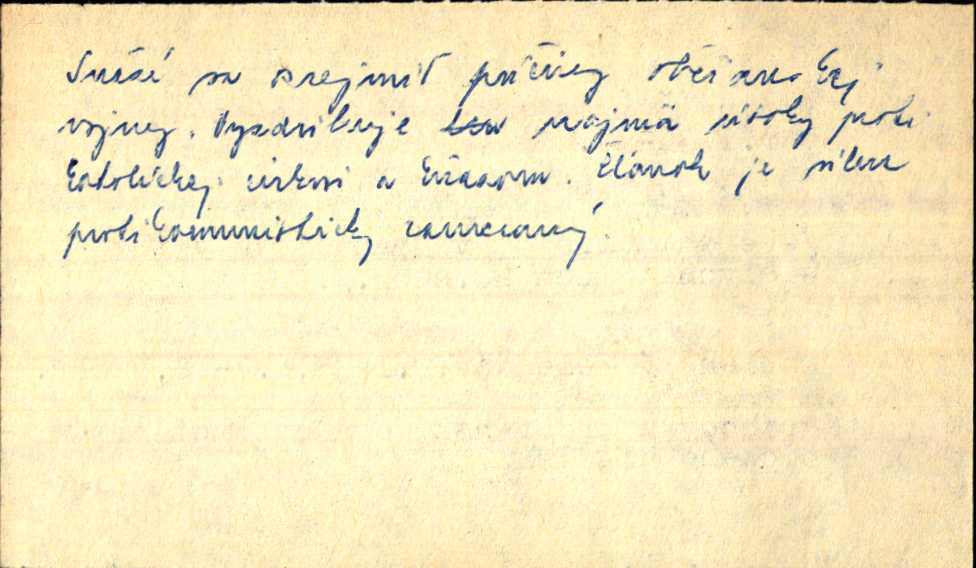 Snaží sa ozrejmiť príčiny občianskej
vojny. Vyzdvihuje najmä útoky proti
katolíckej cirkvi a kňazom. Článok je silne
protikomunisticky zameraný.